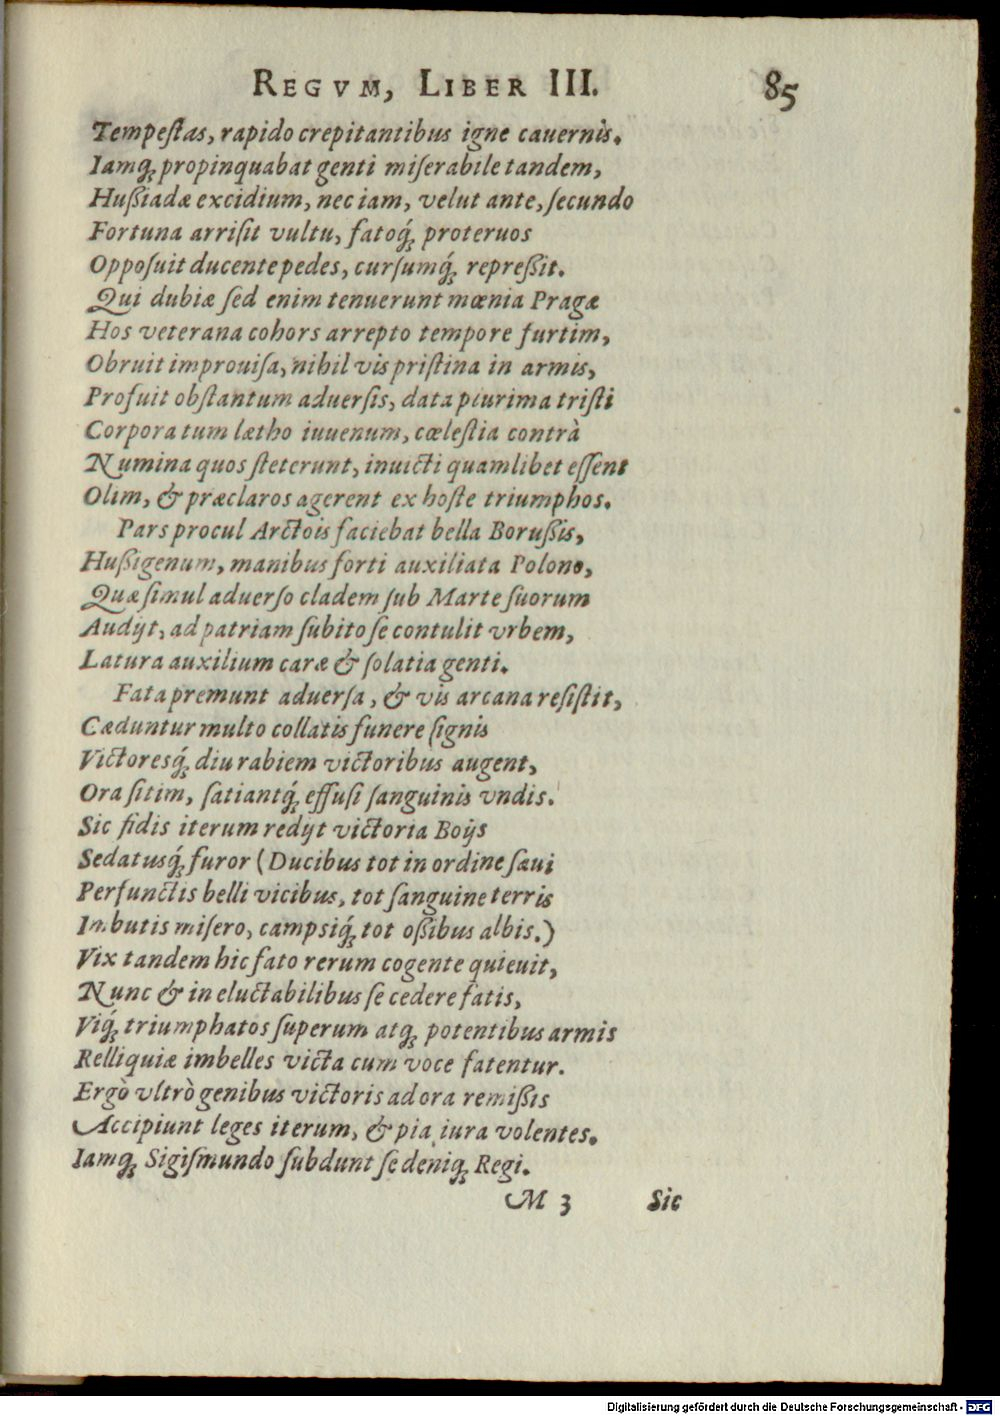 REGVM, LIBER III. 85
Tempeſtas, rapido crepitantibus igne cauernis.
Iamq́; propinquabat genti miſerabile tandem,
Hußiadæ excidium, nec iam, velut ante, ſecundo
Fortuna arriſit vultu, fatoq́; proteruos
Oppoſuit ducente pedes, curſumq́; repreßit.
Qui dubiæ ſed enim tenuerunt mœnia Pragæ
Hos veterana cohors arrepto tempore furtim,
Obruit improuiſa, nihil vis priſtina in armis,
Profuit obſtantum aduerſis, data plurima triſti
Corpora tum lætho iuuenum, cœleſtia contrà
Numina quos ſteterunt, inuicti quamlibet eſſent
Olim, & præclaros agerent ex hoſte triumphos.
Pars procul Arctois faciebat bella Borußis,
Hußigenum, manibus forti auxiliata Polono,
Quæ ſimul aduerſo cladem ſub Marte ſuorum
Audijt, ad patriam ſubito ſe contulit vrbem,
Latura auxilium caræ & ſolatia genti.
Fata premunt aduerſa, & vis arcana reſiſtit,
Cæduntur multo collatis funere ſignis
Victoresq́; diu rabiem victoribus augent,
Ora ſitim, ſatiantq́; effuſi ſanguinis vndis.
Sic fidis iterum redijt victoria Boijs
Sedatusq́; furor (Ducibus tot in ordine ſæui
Perfunctis belli vicibus, tot ſanguine terris
Imbutis miſero, campsiq́; tot oßibus albis.)
Vix tandem hic fato rerum cogente quieuit,
Nunc & ineluctabilibus ſe cedere fatis,
Viq́; triumphatos ſuperum atq; potentibus armis
Relliquiæ imbelles victa cum voce fatentur.
Ergò vltrò genibus victoris ad ora remißis
Accipiunt leges iterum, & pia iura volentes.
Iamq; Sigiſmundo ſubdunt ſe deniq; Regi.
M 3 Sic
Digitalisierung gefördert durch die Deutsche Forschungsgemeinschaft - DFG